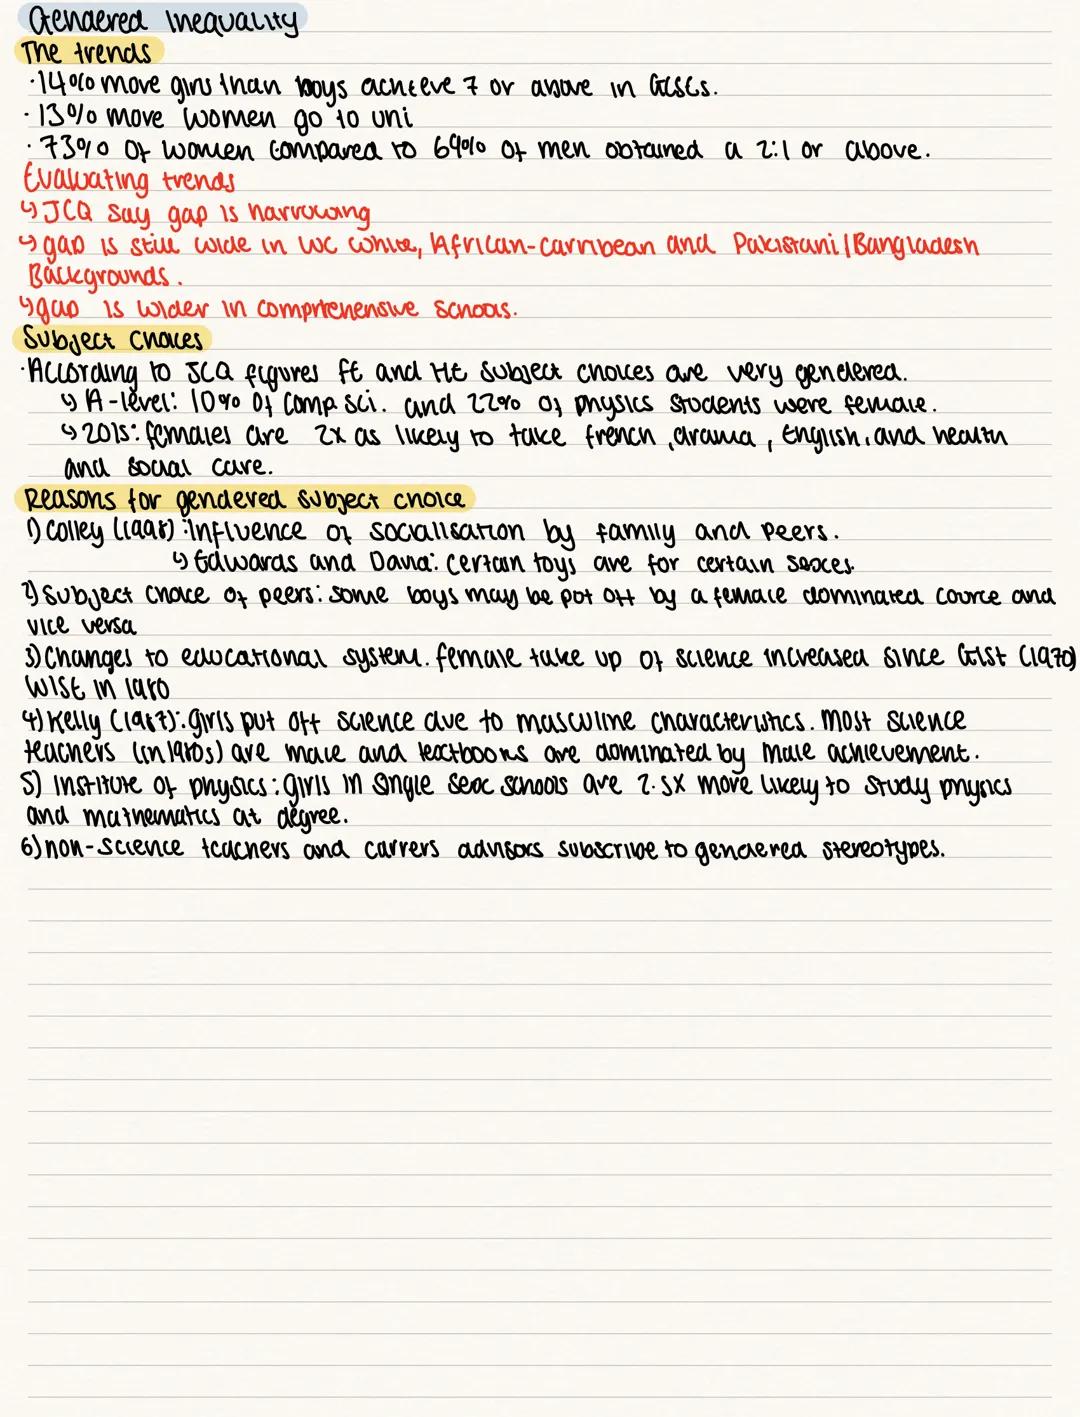 Gendered Inequality
The trends
·14% more girls than boys achieve 7 or above in GCSEs.
·13% more women go to uni
·73% of women compared to 69% of men obtained a 2:1 or above.
Evaluating trends
↳JCQ say gap is narrowing
↳gap is still wide in WC white, African-carribean and Pakistani/Bangladesh
Backgrounds.
↳gap is wider in comprehensive schools.
Subject choices
·According to JCQ figures FE and HE subject choices are very gendered.
↳A-level: 10% of comp sci. and 22% of physics students were female.
↳2015: females are 2x as likely to take french, drama, English, and health
and social care.
Reasons for gendered subject choice
1)Colley (1998): influence of socialisation by family and peers.
↳Edwards and David: certain toys are for certain sexes.
2)Subject choice of peers: some boys may be put off by a female dominated cource and
vice versa
3)Changes to educational system. female take up of science increased since GIST (1970)
WISE in 1980
4)Kelly (1987): girls put off science due to masculine characteristics. Most science
teachers (in 1980s) are male and textbooks are dominated by male achievement.
5) Institute of physics: girls in single sex schools are 2.5x more likely to study physics
and mathematics at degree.
6)non-science teachers and carrers advisors subscribe to gendered stereotypes.